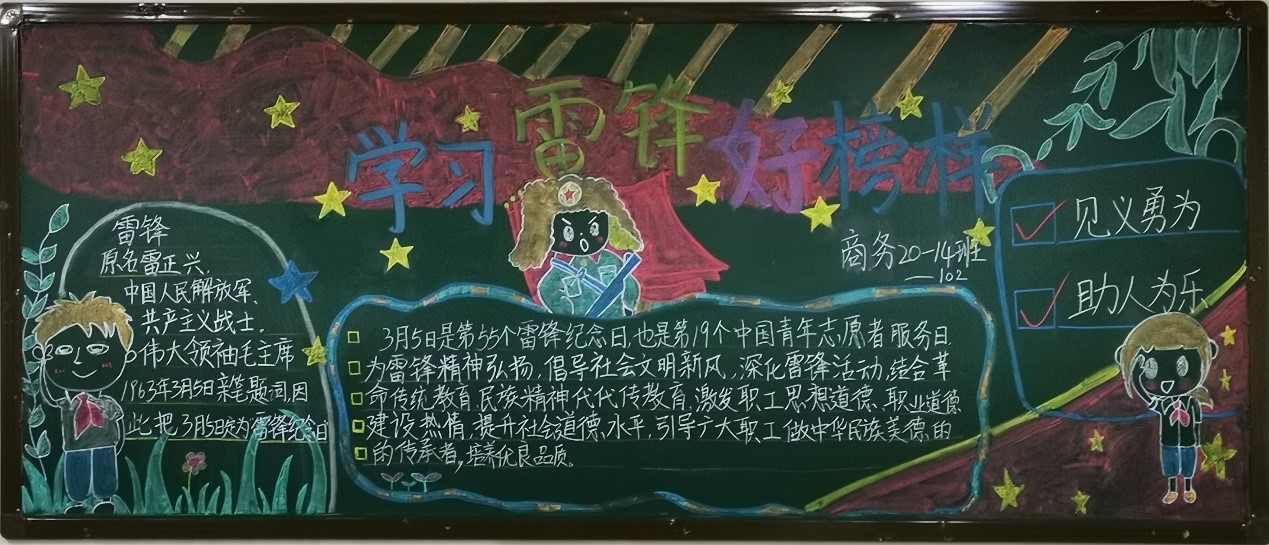 学习雷锋好榜样
商务20-14班
—102
雷锋
原名雷正兴,
中国人民解放军、
共产主义战士,
伟大领袖毛主席
1963年3月5日亲笔题词,因
此把3月5日定为"雷锋纪念日"
3月5日是第55个雷锋纪念日,也是第19个中国青年志愿者服务日
为雷锋精神弘扬,倡导社会文明新风,深化雷锋活动,结合革
命传统教育,民族精神代代传教育,激发职工思想道德、职业道德
建设热情,提升社会道德、水平,引导广大职工做中华民族美德的
的传承者,培养优良品质。
见义勇为
助人为乐